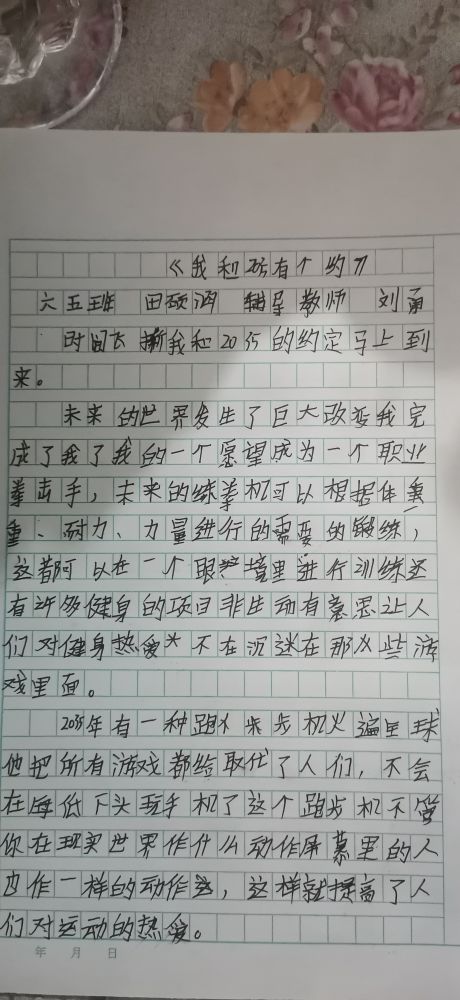 《我和2035有个约》
六五班 田硕 辅导教师 刘勇
时间飞 我和2035的约定马上到
来。
未来的世界发生了巨大改变我完
成了我了我的一个愿望成为一个职业
拳击手,未来的练拳机可以根据体重
量、耐力、力量进行的需要的锻练,
这都可以在一个眼 境里进行训练还
有许多健身的项目非生动有意思让人
们对健身热爱 不在沉迷在那些游
戏里面。
2035年有一种跑步机火遍全球
他把所有游戏都给取代了人们,不会
在每低下头玩手机了这个跑步机不管
你在现实世界作什么动作屏幕里的人
也作一样的动作,这样就提高了人
们对运动的热爱。
年 月 日